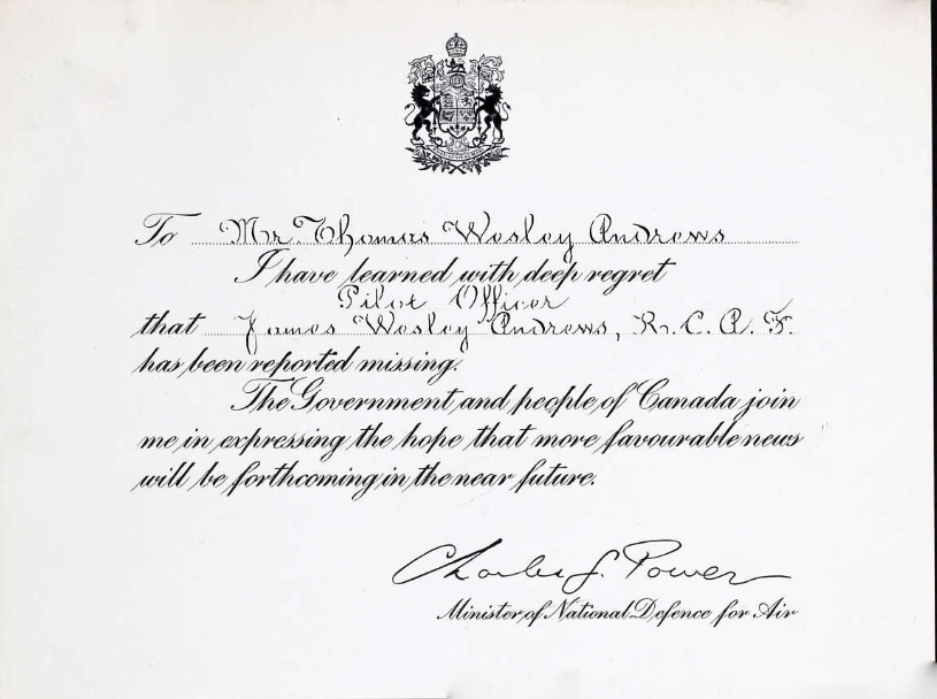 To Mr. Thomas Wesley Andrews
I have learned with deep regret
Pilot Officer
that James Wesley Andrews, R. C. A. F.
has been reported missing.
The Government and people of Canada join
me in expressing the hope that more favourable news
will be forthcoming in the near future.
Charles G. Power
Minister of National Defence for Air